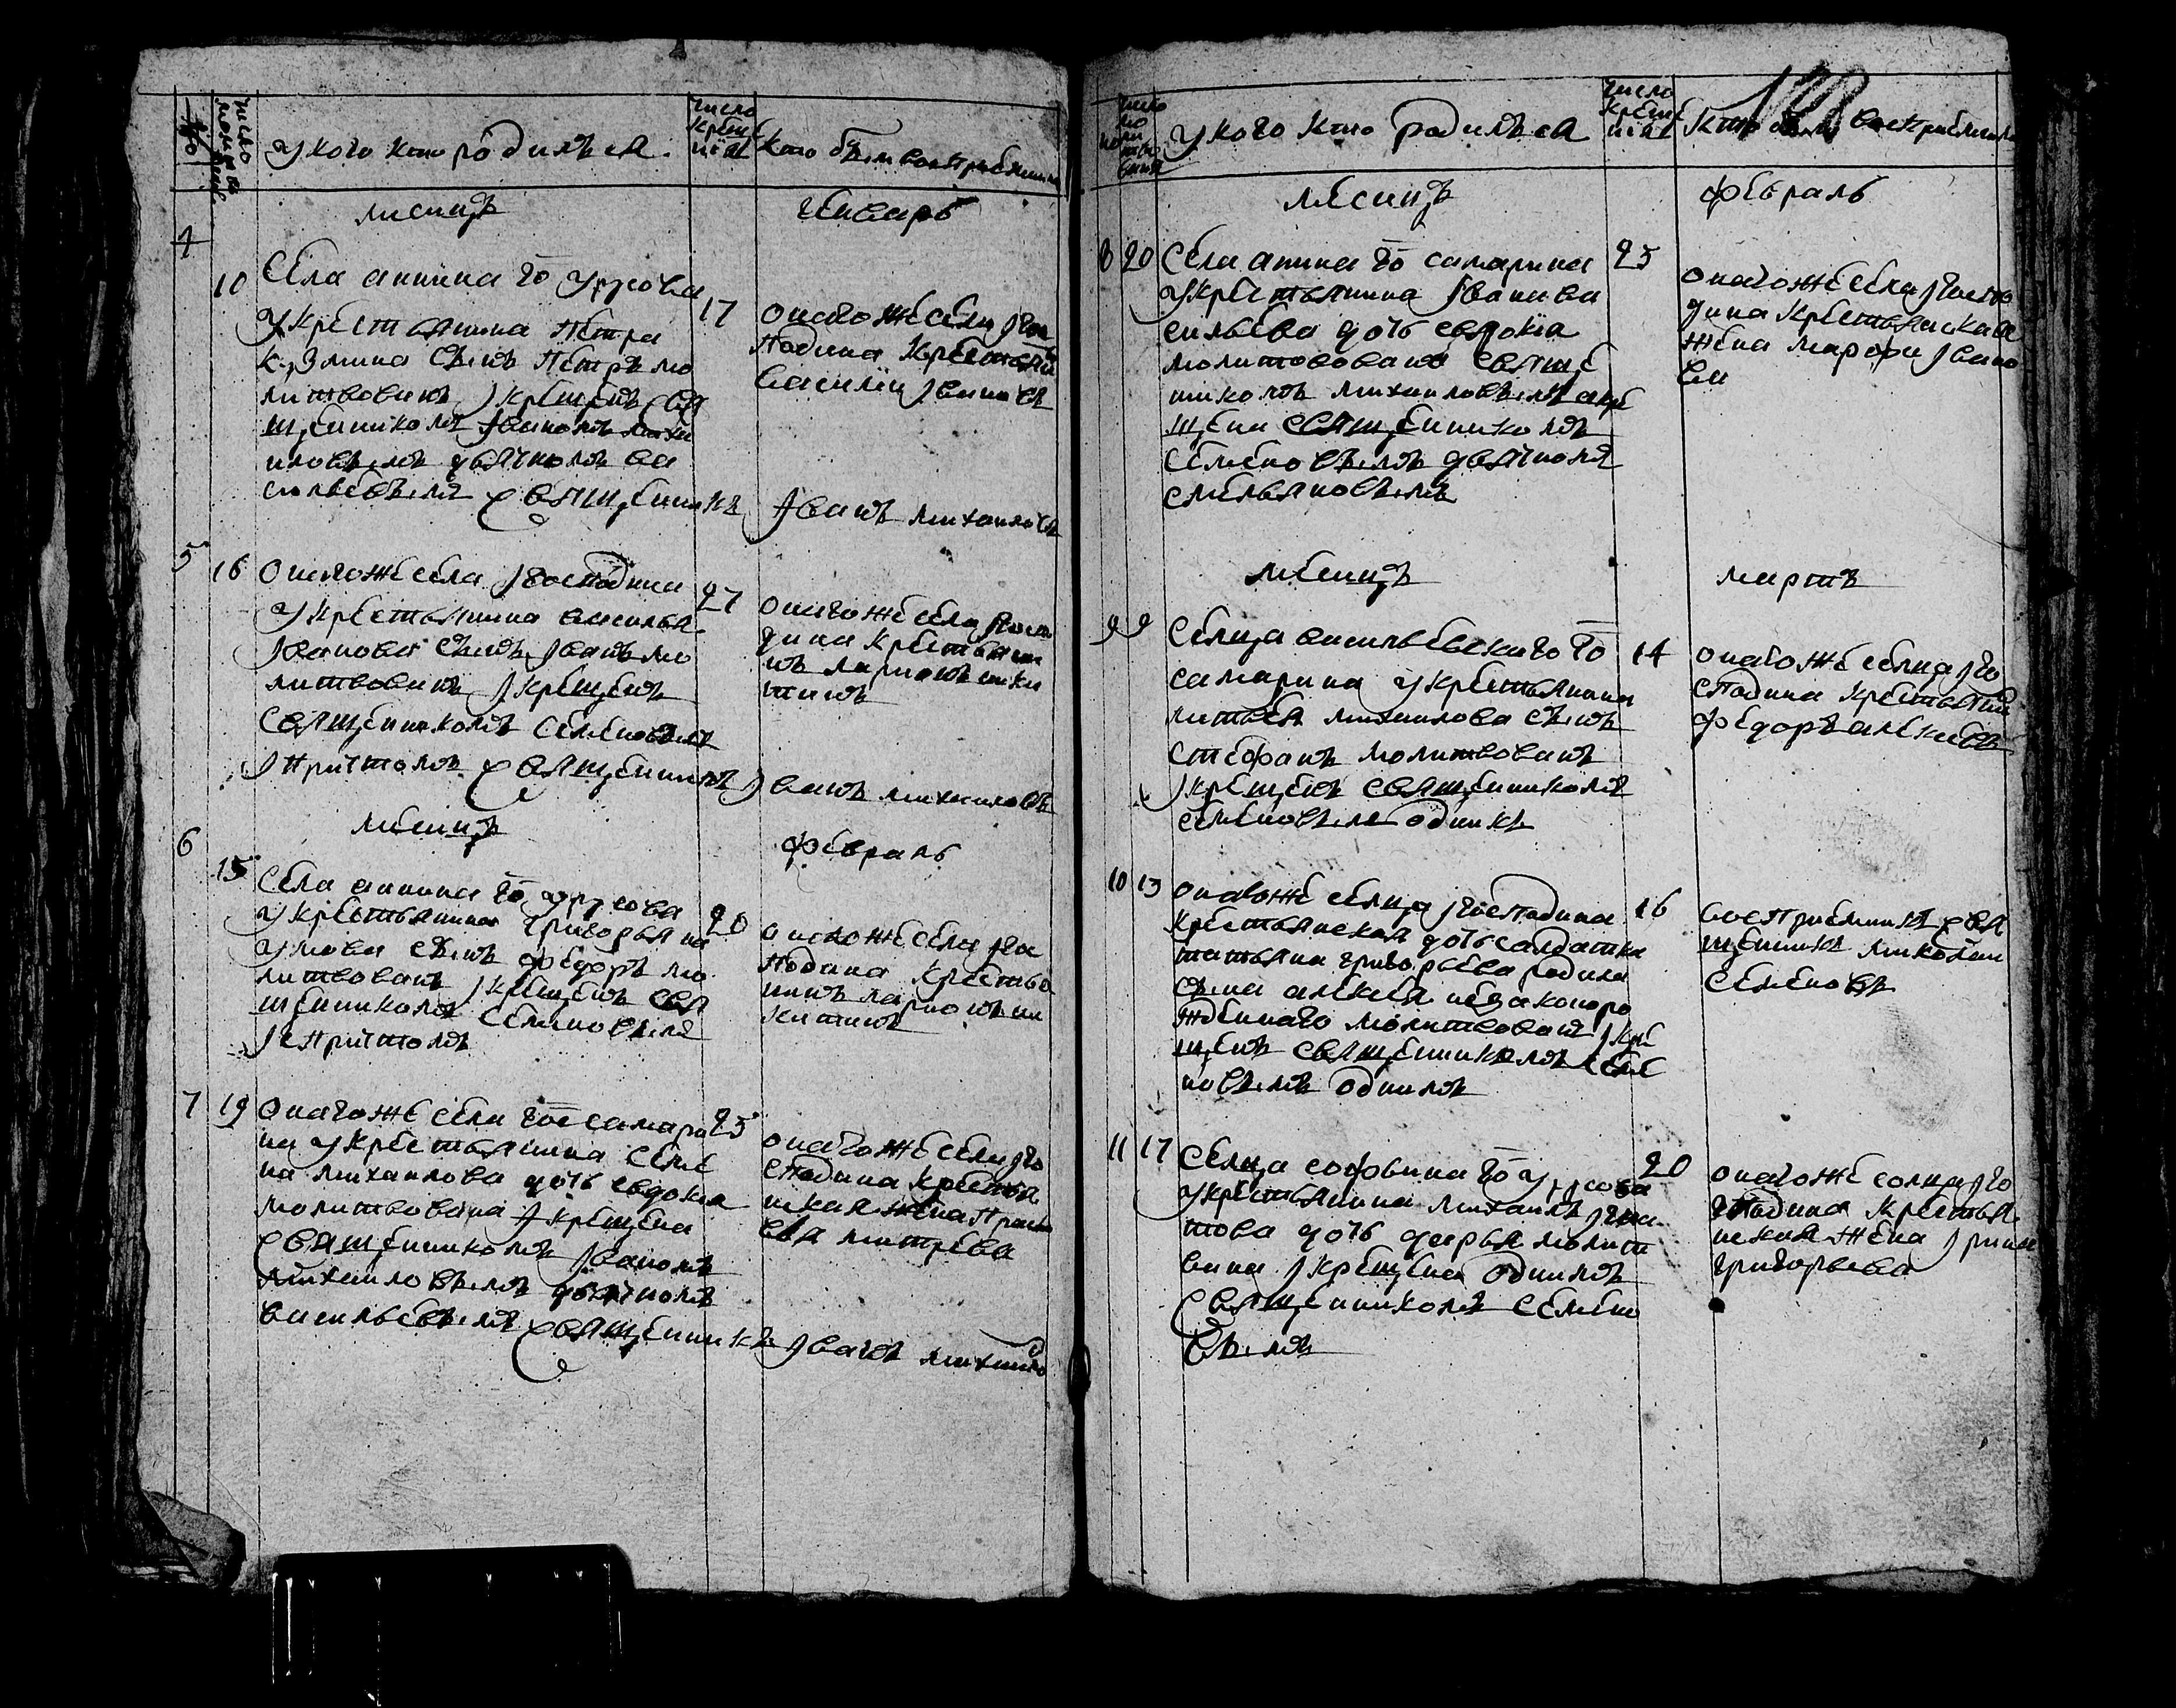 число молитвъ
у кого кто родился
число крещения
кто были восприемники
месицъ
генварь
4
10
Села аннина го урусова
у крестьянина петра
кузмина сынъ петръ мо
литвованъ и крещенъ свя
щенникомъ иваномъ миха
иловымъ дьячкомъ ва
сильевымъ священникъ иванъ михаиловъ
17
оного же села и гос
подина крестьянинъ
василии ивановъ
5
16
оного же села и господина
у крестьянина василья
иванова сынъ иванъ мо
литвованъ и крещенъ
священникомъ семеновымъ
и причтомъ священникъ иванъ михаиловъ
27
оного же села и госпо
дина крестьяни
нъ ларионъ ники
тинъ
месицъ
февраль
6
15
Села аннина го урусова
у крестьянина григорья на
умова сынъ федоръ мо
литвованъ и крещенъ свя
щенникомъ семеновымъ
и с причтомъ
20
оного же села и гос
подина крестья
нинъ ларионъ ни
китинъ
7
19
оного же села гос самари
на у крестьянина семе
на михаилова дочь евдокия
молитвована и крещена
священникомъ иваномъ
михаиловымъ дьячкомъ
васильевымъ священникъ иванъ михаило
25
оного же села и го
сподина крестья
нская жена праско
вья митрева
у кого кто родился
число крещения
кто были восприемники
месицъ
февраль
8
20
Села анина го самарина
у крестьянина ивана ва
сильева дочь евдокия
молитвована свяще
никомъ михаиловымъ а кре
щена священникомъ
семеновымъ дьячкомъ
емельяновымъ
25
оного же села и госпо
дина крестьянская
жена марфа ивано
ва
месицъ
мартъ
9
9
Селца васильевскаго го
самарина у крестьянина
митвея михаилова сынъ
стефанъ молитвованъ
и крещенъ священникомъ
семеновымъ одинъ
14
оного же селца и го
сподина крестьянинъ
федоръ алексеевъ
10
13
оного же селца и господина
крестьянская дочь салдатка
татьяна григорьева родила
сына алексея незаконоро
жденнаго молитвованъ и кре
щенъ священникомъ семе
новымъ одинмъ
16
восприемникъ свя
щенникъ николаи
семеновъ
11
17
Селца софьина го урусова
у крестьянина михаилы игна
това дочь дарья молит
вана и крещена однимъ
священникомъ семено
вымъ
20
оного же солца и го
сподина крестья
нская жена ирина
григорьева